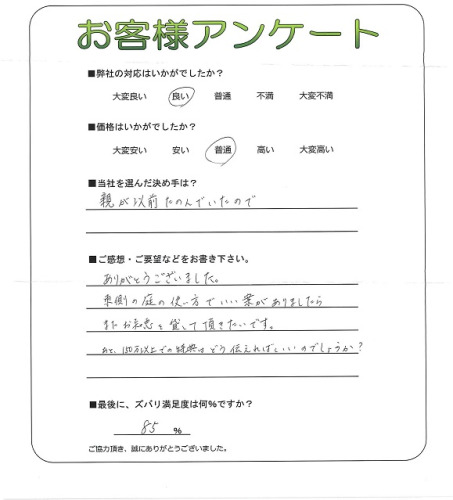 お客様アンケート
■弊社の対応はいかがでしたか？
大変良い 良い 普通 不満 大変不満
■価格はいかがでしたか？
大変安い 安い 普通 高い 大変高い
■当社を選んだ決め手は？
親が以前たのんでいたので
■ご感想・ご要望などをお書き下さい。
ありがとうございました。
東側の庭の使い方でいい案がありましたら
またお知恵を貸して頂きたいです。
あと、150万以上での特典はどう伝えればいいのでしょうか？
■最後に、ズバリ満足度は何％ですか？
85 %
ご協力頂き、誠にありがとうございました。